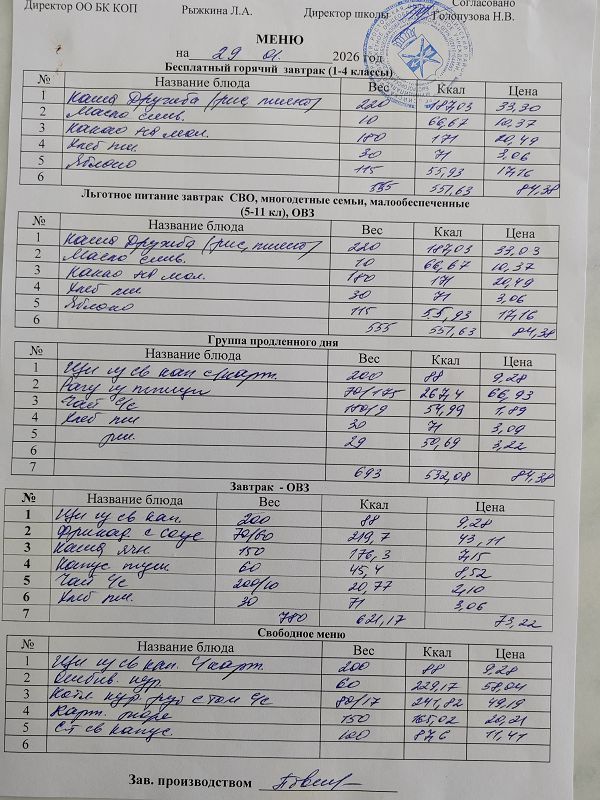 Согласовано
Директор ОО БК КОП Рыжкина Л.А. Директор школы Голопузова Н.В.
МЕНЮ
на 29 01. 2026 год
Бесплатный горячий завтрак (1-4 классы)
№ Название блюда Вес Ккал Цена
1 Каша Дружба (рис, пшено) 220 187,03 33,30
2 Масло слив. 10 66,67 10,37
3 Какао на мол. 180 171 20,49
4 Хлеб пш. 30 71 3,06
5 Яблоко 115 55,93 17,16
6 555 551,63 84,38
Льготное питание завтрак СВО, многодетные семьи, малообеспеченные
(5-11 кл), ОВЗ
№ Название блюда Вес Ккал Цена
1 Каша Дружба (рис, пшено) 220 187,03 33,03
2 Масло слив. 10 66,67 10,37
3 Какао на мол. 180 171 20,49
4 Хлеб пш 30 71 3,06
5 Яблоко 115 55,93 17,16
6 555 551,63 84,38
Группа продленного дня
№ Название блюда Вес Ккал Цена
1 Щи из св кап с/карт. 200 88 9,28
2 Рагу из птицы 70/175 267,4 66,93
3 Чай с/с 150/9 54,99 1,89
4 Хлеб пш 30 71 3,09
5 рж. 29 50,69 3,22
6
7 693 532,08 84,38
Завтрак - ОВЗ
№ Название блюда Вес Ккал Цена
1 Щи из св кап. 200 88 9,28
2 Фрикад с соус 70/50 219,7 43,11
3 Каша ячн 150 176,3 7,15
4 Капус туш 60 45,4 8,52
5 Чай с/с 200/10 20,77 2,10
6 Хлеб пш. 30 71 3,06
7 780 621,17 73,22
Свободное меню
№ Название блюда Вес Ккал Цена
1 Щи из св кап. с/карт. 200 88 9,28
2 Отбивн. кур 60 229,17 58,04
3 Котл кур. руб с том с/с 80/17 241,82 49,19
4 Карт. пюре 150 165,02 20,21
5 С-т св капус. 100 87,6 11,41
6
Зав. производством